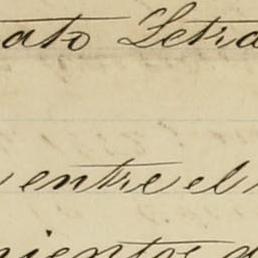 ato Letra
entre el
mientos d